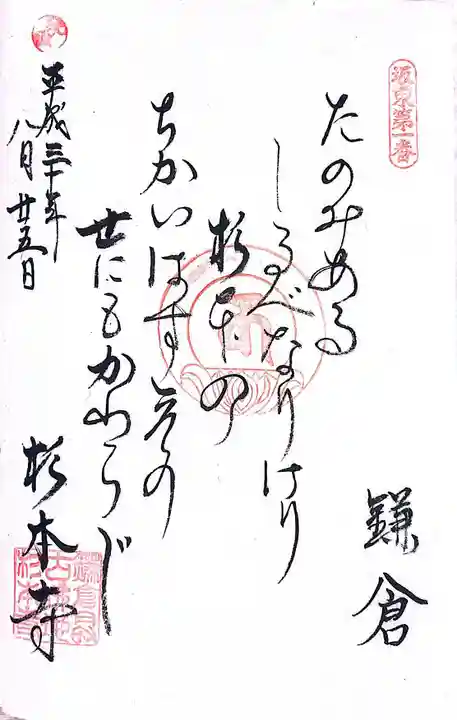 坂東第一番
鎌倉
たのみある
しるべなりけり
杉本の
ちかいはすゑの
世にもかわらじ
平成三十年
八月廿五日
杉本寺